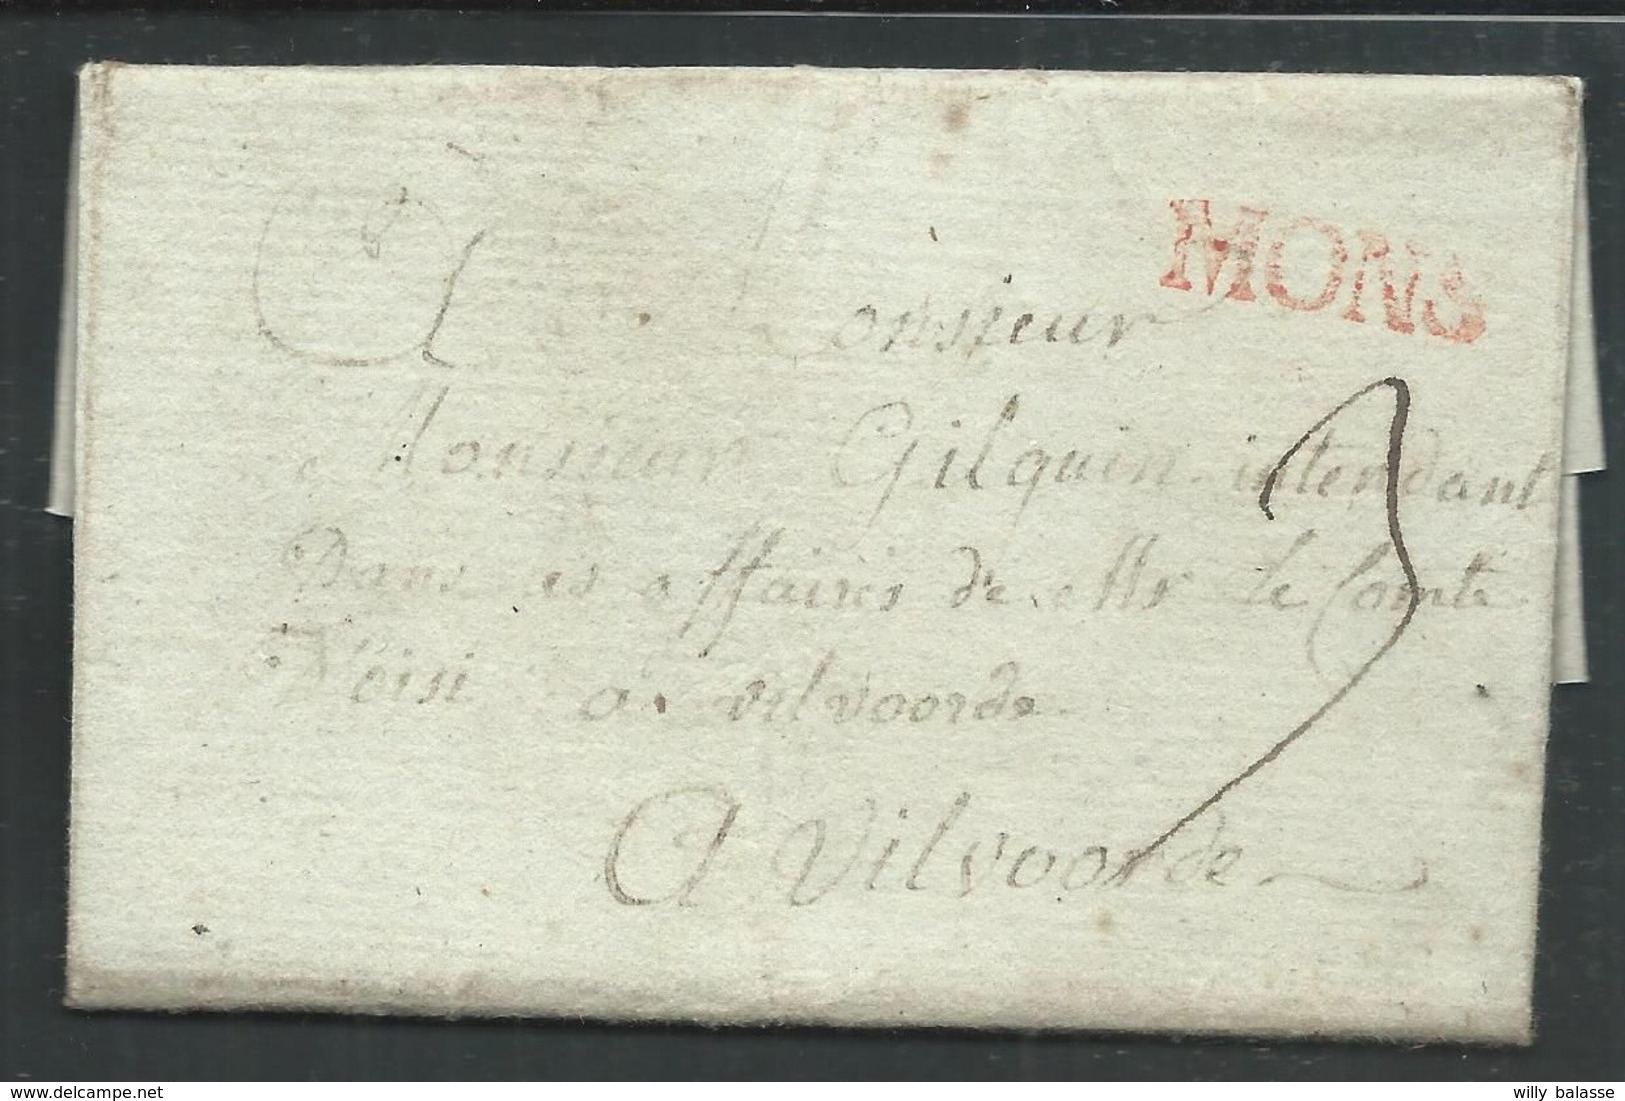 MONS
A Monsieur
3
Monsieur Gilquin intendant
Dans les affaires de Mr Le Comte
à vilvoorde
A Vilvoorde
willy balasse